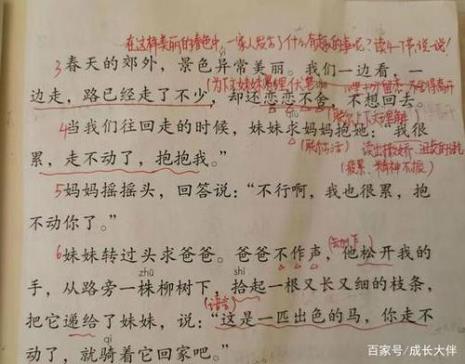 在这样美丽的春色中,一家人发生了什么有趣的事呢?读4-7节,说一说!
3春天的郊外，景色异常美丽。我们一边看，一
边走，路已经走了不少，却还恋恋不舍，不想回去。
(联系上下文理解)
4当我们往回走的时候，妹妹求妈妈抱她：“我很
qiú
累，走不动了，抱抱我。”
5妈妈摇摇头，回答说：“不行啊，我也很累，抱
不动你了。”
6妹妹转过头求爸爸。爸爸不作声，他松开我的
zhū
shí
手，从路旁一株柳树下，拾起一根又长又细的枝条，
(语言)
把它递给了妹妹，说：“这是一匹出色的马，你走不
qí
动了，就骑着它回家吧。”
百家号/成长大伴